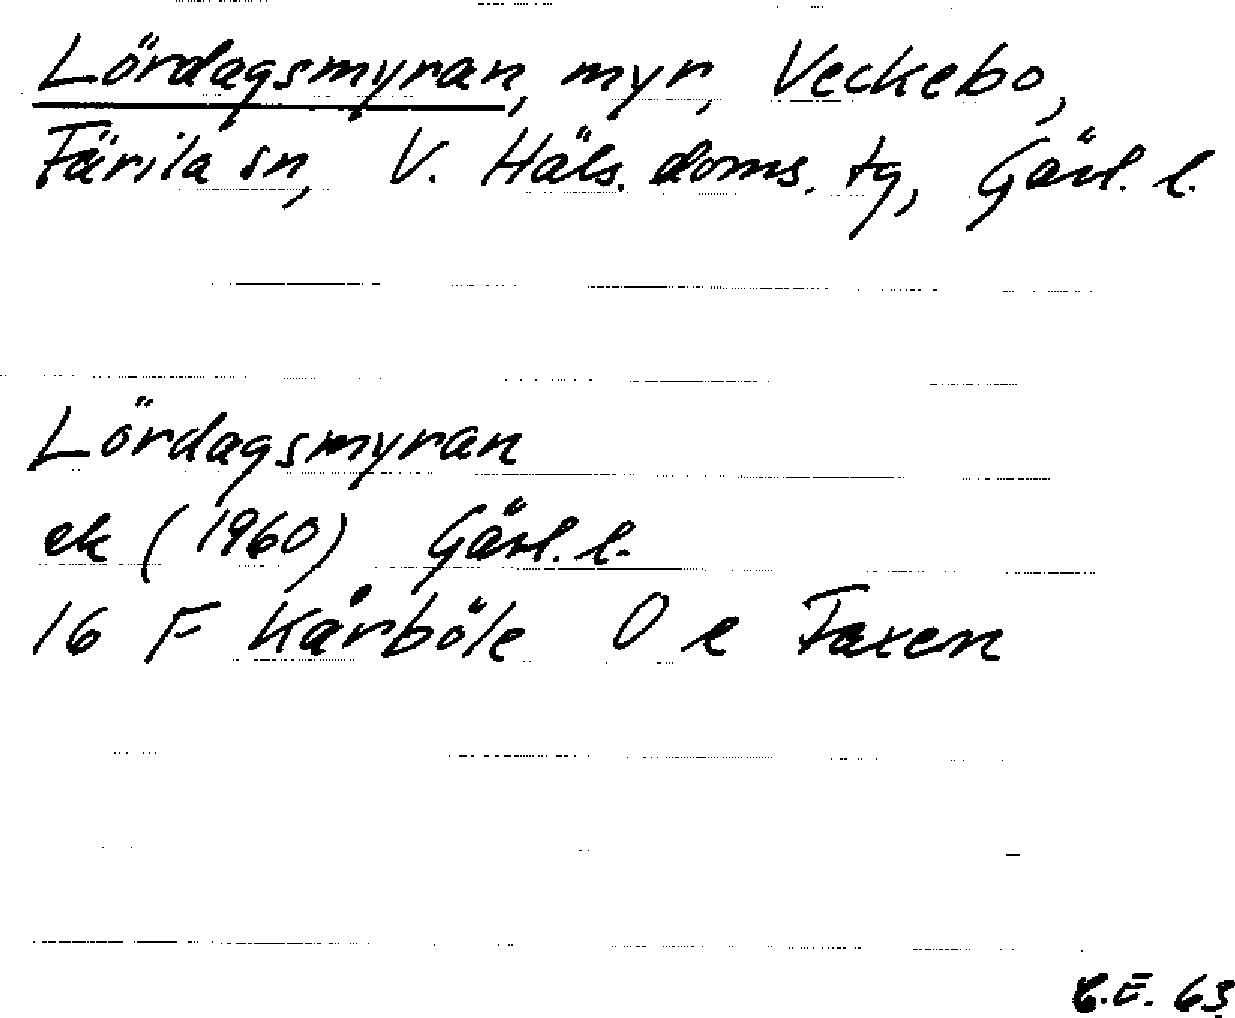 Lördagsmyran, myr, Veckebo,
Färila sn, V. Häls. doms. tg, Gävl. l.
Lördagsmyran
ek (1960) Gävl. l.
16 F Kårböle O e Faxen
E. 63